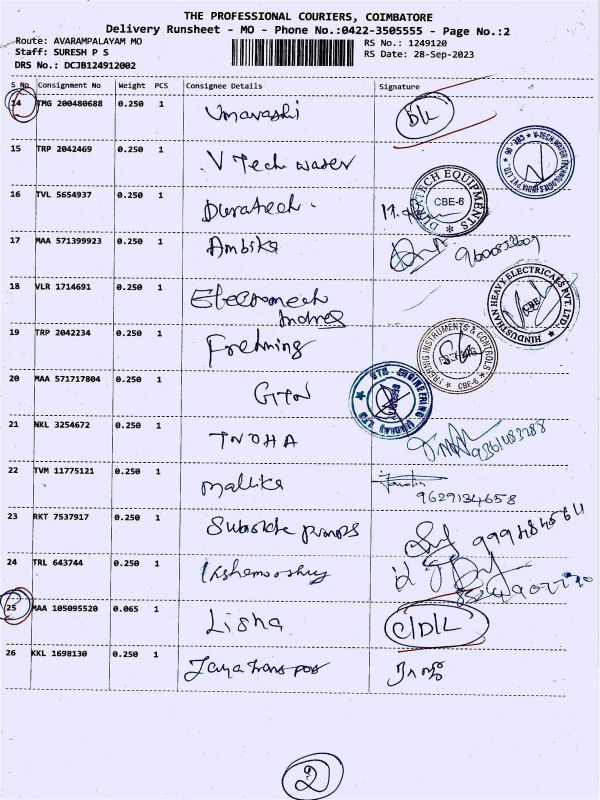 THE PROFESSIONAL COURIERS, COIMBATORE
Delivery Runsheet - MO - Phone No.:0422-3505555 - Page No.:2
Route: AVARAMPALAYAM MO RS No.: 1249120
Staff: SURESH P S RS Date: 28-Sep-2023
DRS No.: DCJB124912002
S No Consignment No Weight PCS Consignee Details Signature
14 TMG 200480688 0.250 1 Umavashi
15 TRP 2042469 0.250 1 V Tech water
16 TVL 5654937 0.250 1 Duratech. DURATECH EQUIPMENTS CBE-6
17 MAA 571399923 0.250 1 Ambika
18 VLR 1714691 0.250 1 Electromech HINDUSTHAN HEAVY ELECTRICALS PVT. LTD., CBE
19 TRP 2042234 0.250 1 INSTRUMENTS & CONTROLS CBE-6
20 MAA 571717804 0.250 1 GTN
21 NKL 3254672 0.250 1 TNOHA
22 TVM 11775121 0.250 1 Mallika 9629134658
23 RKT 7537917 0.250 1
24 TRL 643744 0.250 1
25 MAA 105095520 0.065 1 Lisha
26 KKL 1698130 0.250 1 Jaya transpos
2